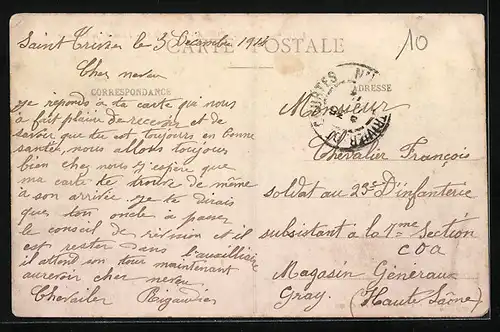 Saint Trivier le 3 Décembre 1914
CARTE POSTALE
10
Cher neveu
CORRESPONDANCE
ADRESSE
je reponds à ta carte qui nous
à fait plaisir de recevoir et de
savoir que tu est toujours en bonne
santée, nous allons toujours
bien chez nous J'espère que
ma carte te trouve de même
à son arrivée. Je te dirais
que ton oncle à passer
le conseil de révision et il
est rester dans l'auxilliaire
il attend son tour maintenant
aurevoir cher neveu
Chevalier Rigaudier
COURTES
Monsieur
Chevalier François
soldat au 23e D'infanterie
subsistant à la 7me Section
C O A
Magasin Généraux
Gray. (Haute Saône)